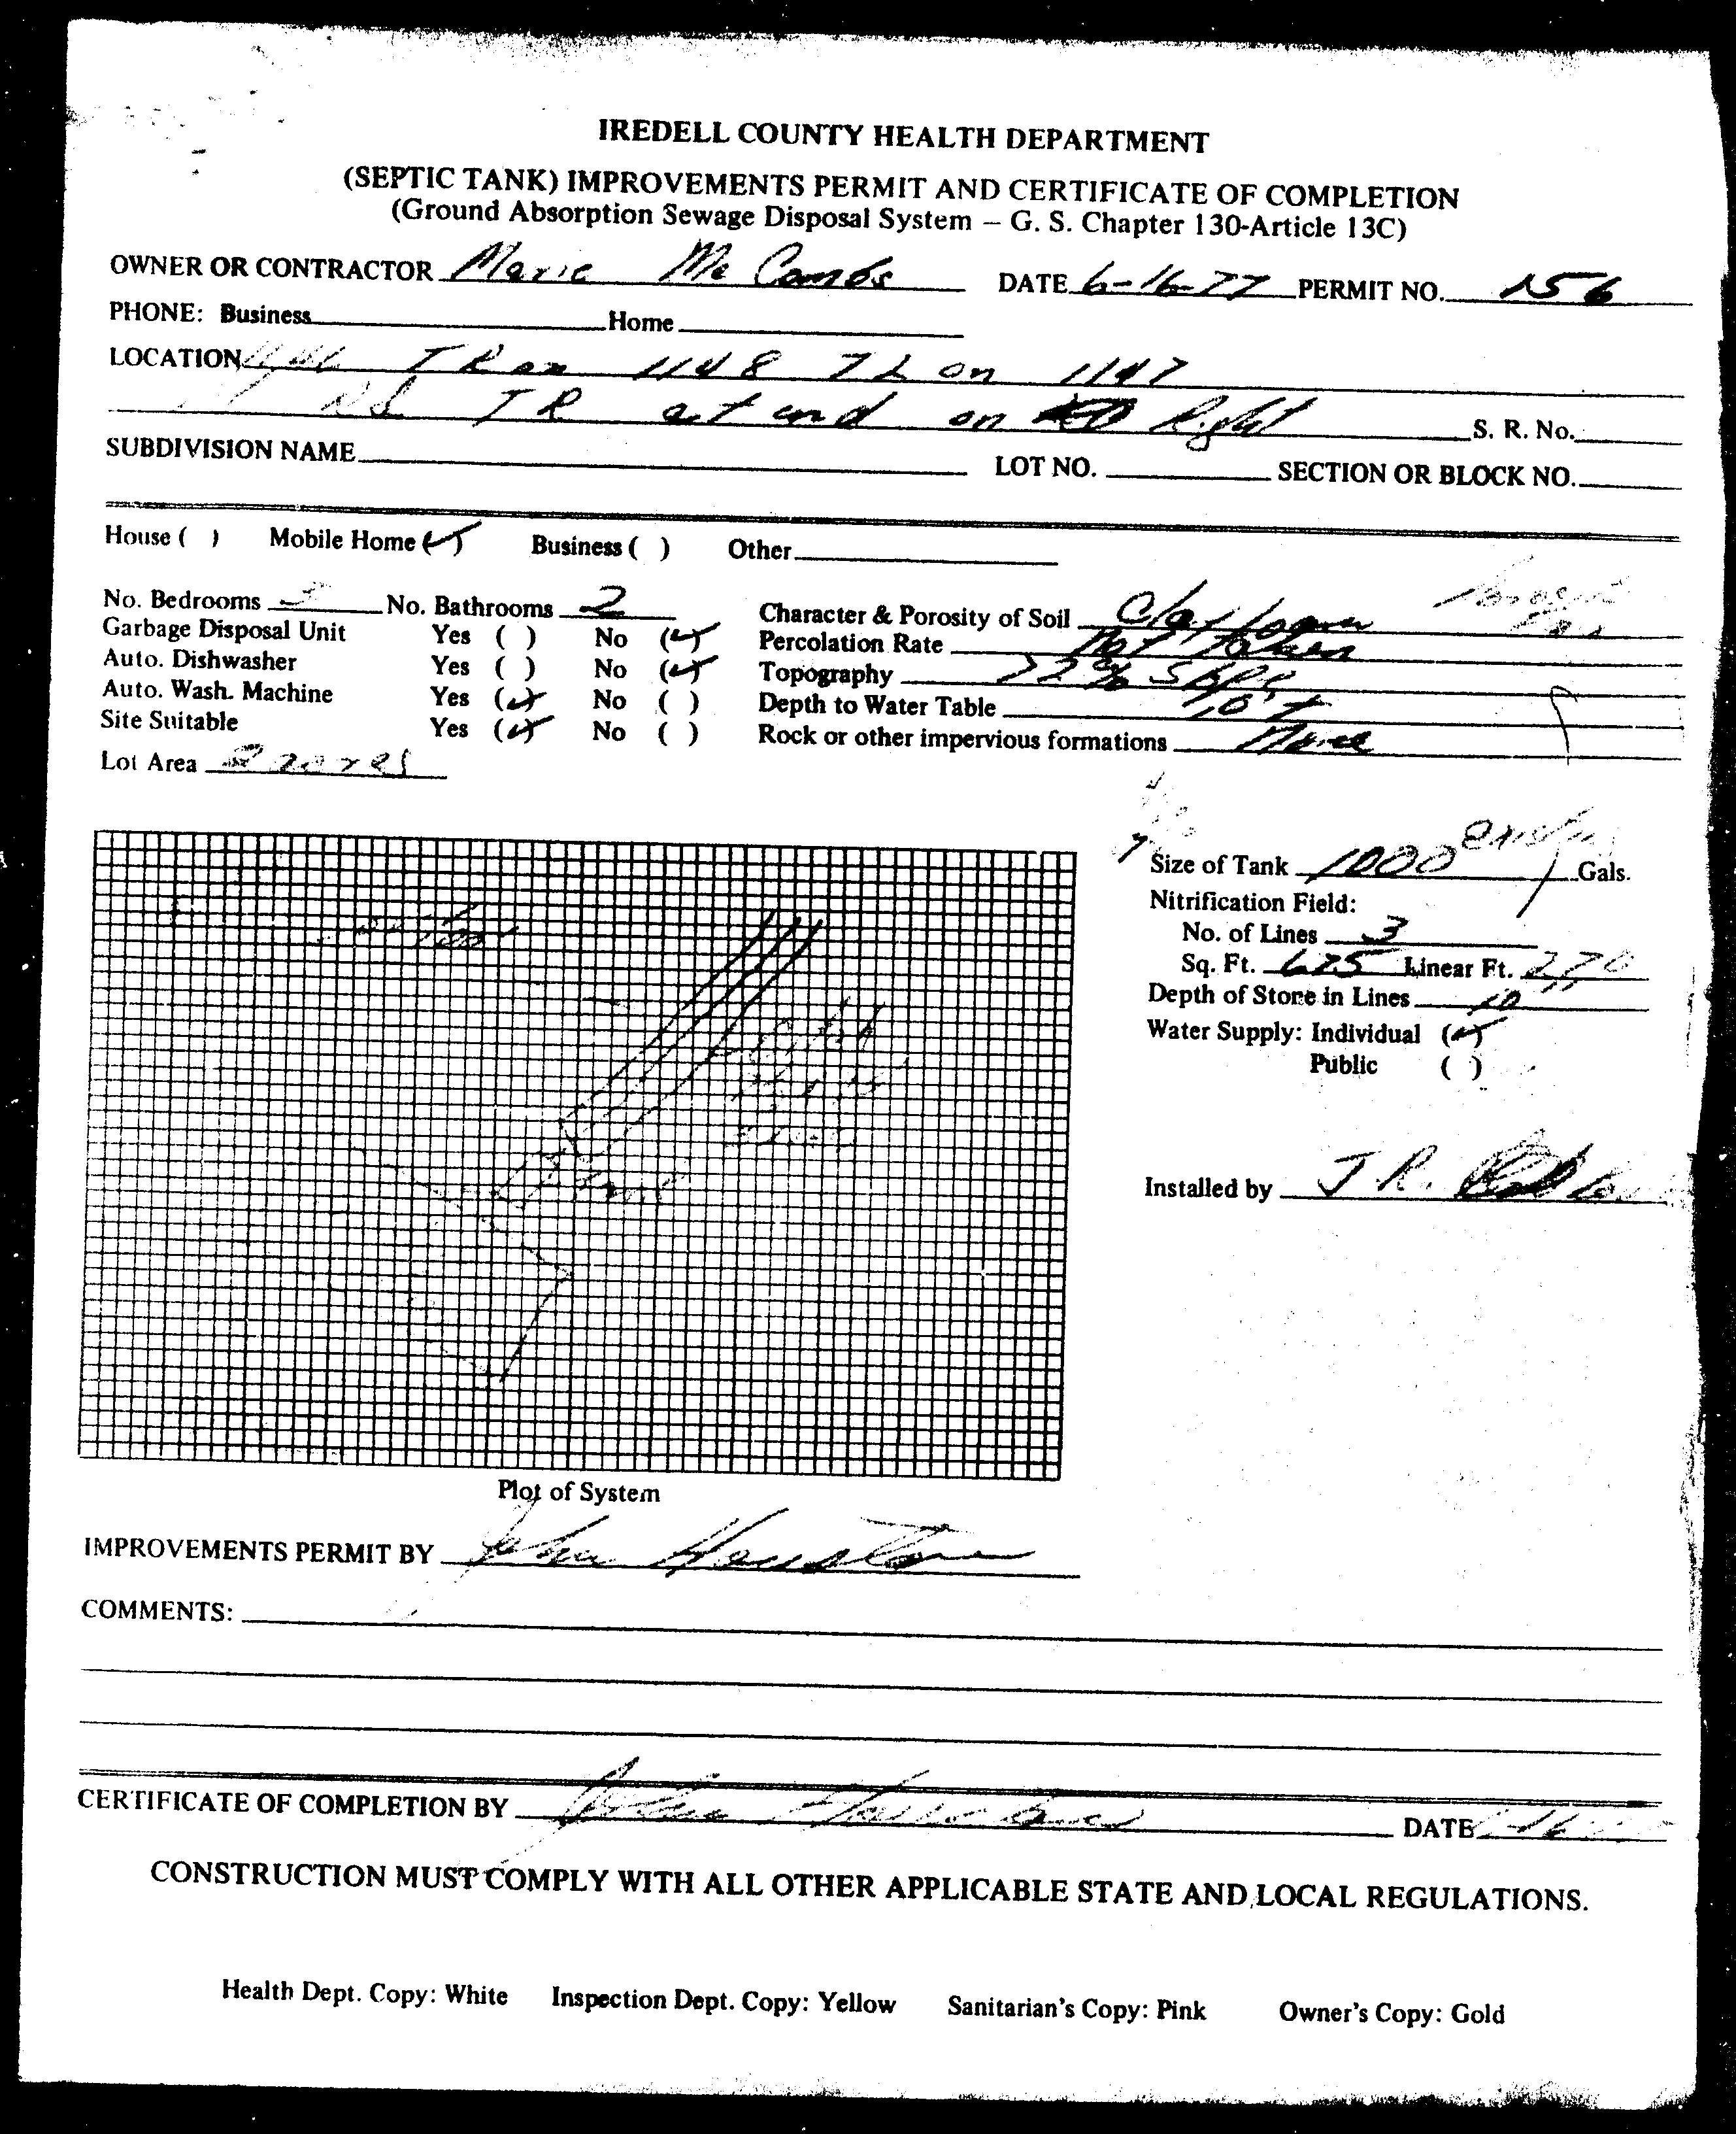 IREDELL COUNTY HEALTH DEPARTMENT
(SEPTIC TANK) IMPROVEMENTS PERMIT AND CERTIFICATE OF COMPLETION
(Ground Absorption Sewage Disposal System – G. S. Chapter 130-Article 13C)
OWNER OR CONTRACTOR Marie Mc Combs DATE 6-16-77 PERMIT NO. 156
PHONE: Business Home
LOCATION TR on 1148 TL on 1147
Rd TR at end on Right S. R. No.
SUBDIVISION NAME LOT NO. SECTION OR BLOCK NO.
House ( ) Mobile Home (✓) Business ( ) Other
No. Bedrooms 3 No. Bathrooms 2 Character & Porosity of Soil Clay loam
Garbage Disposal Unit Yes ( ) No (✓) Percolation Rate Not taken
Auto. Dishwasher Yes ( ) No (✓) Topography >2% Slope
Auto. Wash. Machine Yes (✓) No ( ) Depth to Water Table 10'+
Site Suitable Yes (✓) No ( ) Rock or other impervious formations None
Lot Area 2 acres
Size of Tank 1000 existing Gals.
Nitrification Field:
No. of Lines 3
Sq. Ft. 675 Linear Ft. 270
Depth of Stone in Lines 10"
Water Supply: Individual (✓)
Public ( )
Installed by J R.
Plot of System
IMPROVEMENTS PERMIT BY John Houston
COMMENTS:
CERTIFICATE OF COMPLETION BY John DATE
CONSTRUCTION MUST COMPLY WITH ALL OTHER APPLICABLE STATE AND LOCAL REGULATIONS.
Health Dept. Copy: White Inspection Dept. Copy: Yellow Sanitarian's Copy: Pink Owner's Copy: Gold